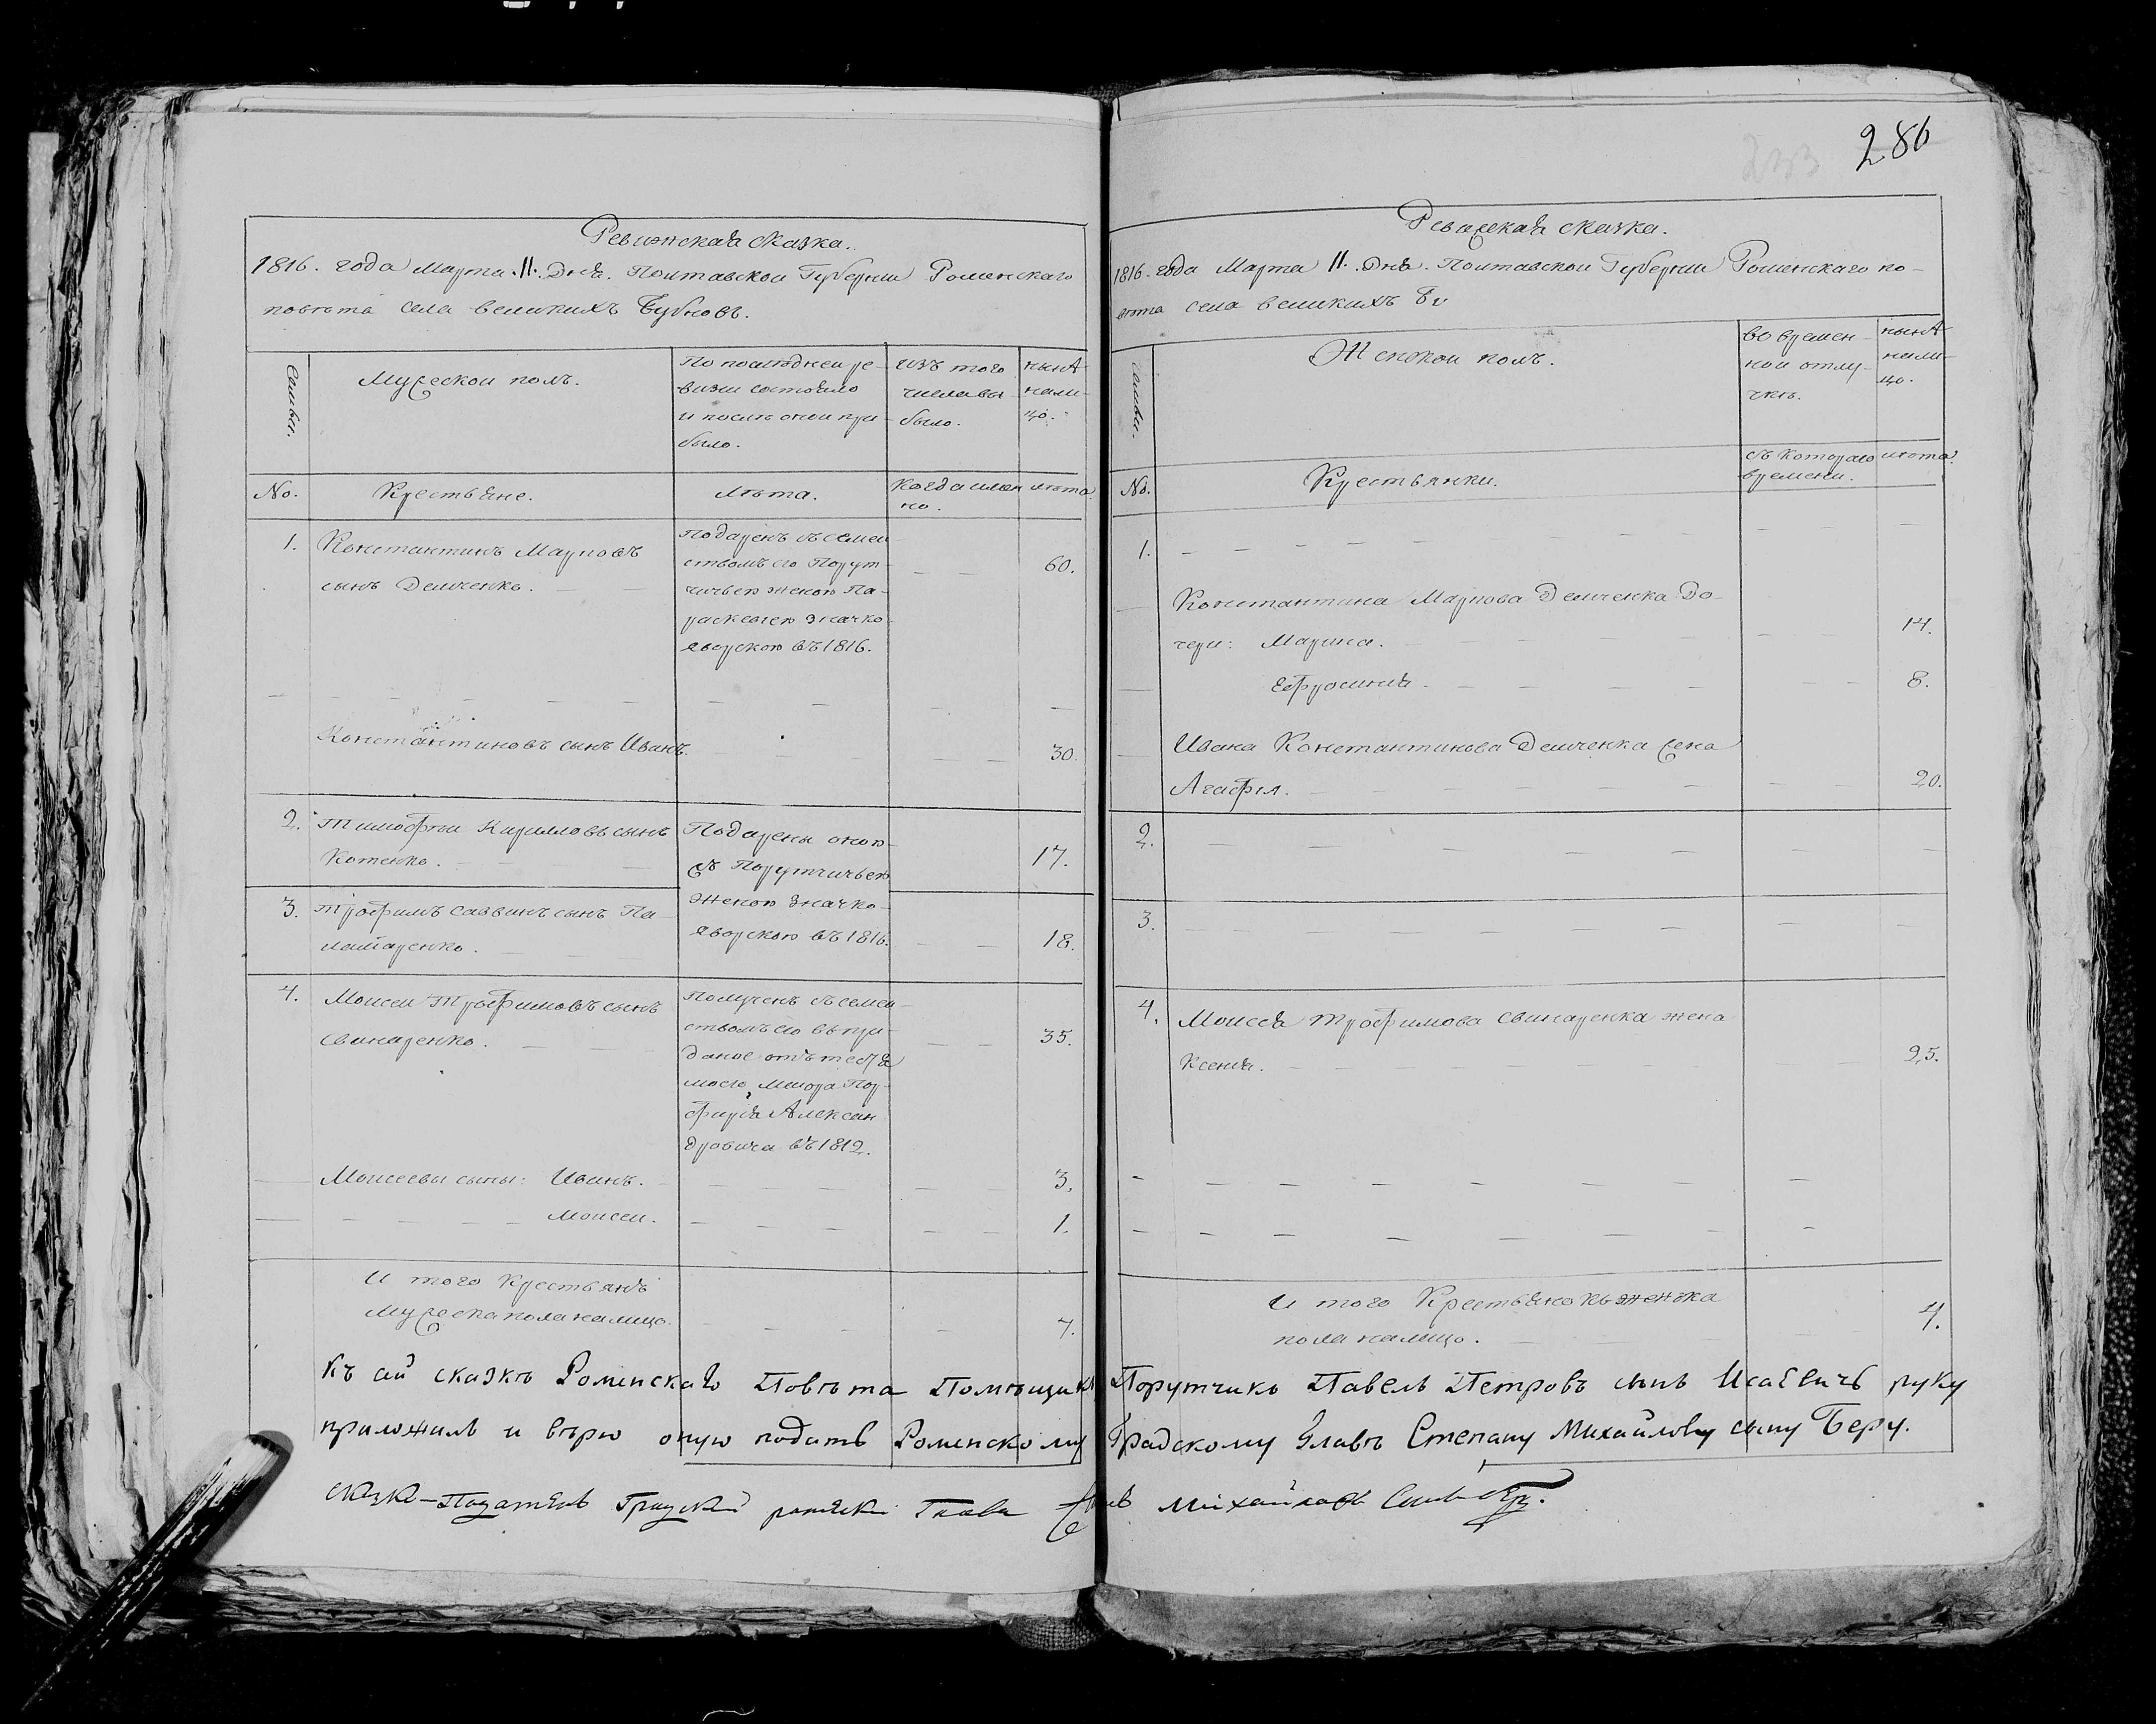 286
Ревижская сказка.
1816. года Марта .11. Дня. Полтавской Губернии Роменскаго
повѣта села великихъ Бубновъ.
Семьи.
Мужеской полъ.
По последней ре-
визии состояло
и послѣ оной при-
было.
изъ того
числа вы-
было.
нынѣ
нали-
цо.
No.
Крестьяне.
лѣта.
Когда имян
но.
лѣта
1.
Константинъ Марковъ
сынъ Демченко.
Подаренъ съ семей
ствомъ его Порут-
чичьею женою Па-
раскевиею Значко
яворскою въ 1816.
60.
Константиновъ сынъ Иванъ.
30.
2.
Тимофѣй Кириловъ сынъ
Котенко.
Подарены оною-
жъ Порутчичьею
женою Значко-
яворскою въ 1816.
17.
3.
Трофимъ Саввинъ сынъ Па-
ламаренко.
18.
4.
Моисей Трофимовъ сынъ
Свинаренко.
Полученъ съ семей-
ствомъ его въ при-
даное отъ тестя
моего Миора Пор-
фирія Алексан
дровича въ 1812.
35.
Моисеевы сыны: Иванъ.
3.
Моисей.
1.
И того Крестьянъ
Мужеска пола налицо.
7.
Ревижская сказка.
1816. года Марта 11. Дня. Полтавской Губернии Роменскаго по-
вѣта села великихъ Бу
Семьи.
Женской полъ.
во времен-
ной отлу-
чкѣ.
нынѣ
нали-
цо.
No.
Крестьянки.
съ котораго
времени.
лѣта.
1.
Константина Маркова Демченка До-
чери: Марина.
14.
Ефросиния
8.
Ивана Константинова Демченка жена
Агафия.
20.
2.
3.
4.
Моисея Трофимова Свинаренка жена
Ксения.
25.
И того Крестьянокъ женска
пола налицо.
4.
Къ сей сказкѣ Роменскаго Повѣта Помѣщикъ Порутчикъ Павелъ Петровъ сынъ Исаевичь руку
приложилъ и вѣрю оную подать Роменскому Градскому Главѣ Степану Михайлову сыну Беру.